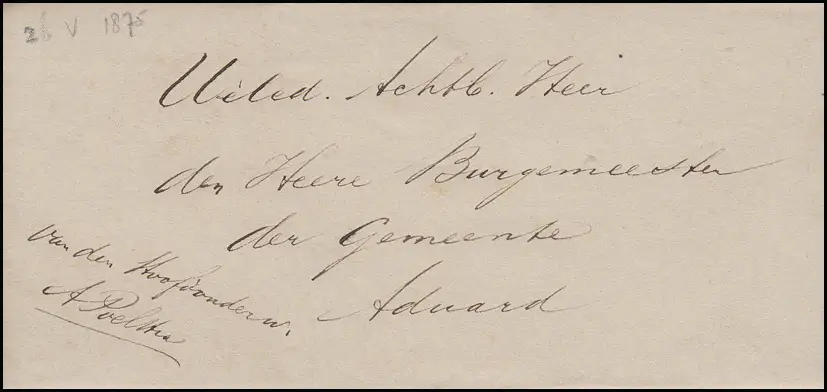 26 V 1875
Weled. Achtb. Heer
den Heere Burgemeester
der Gemeente
Aduard
van den Hoofdonderw.
A Poelstra